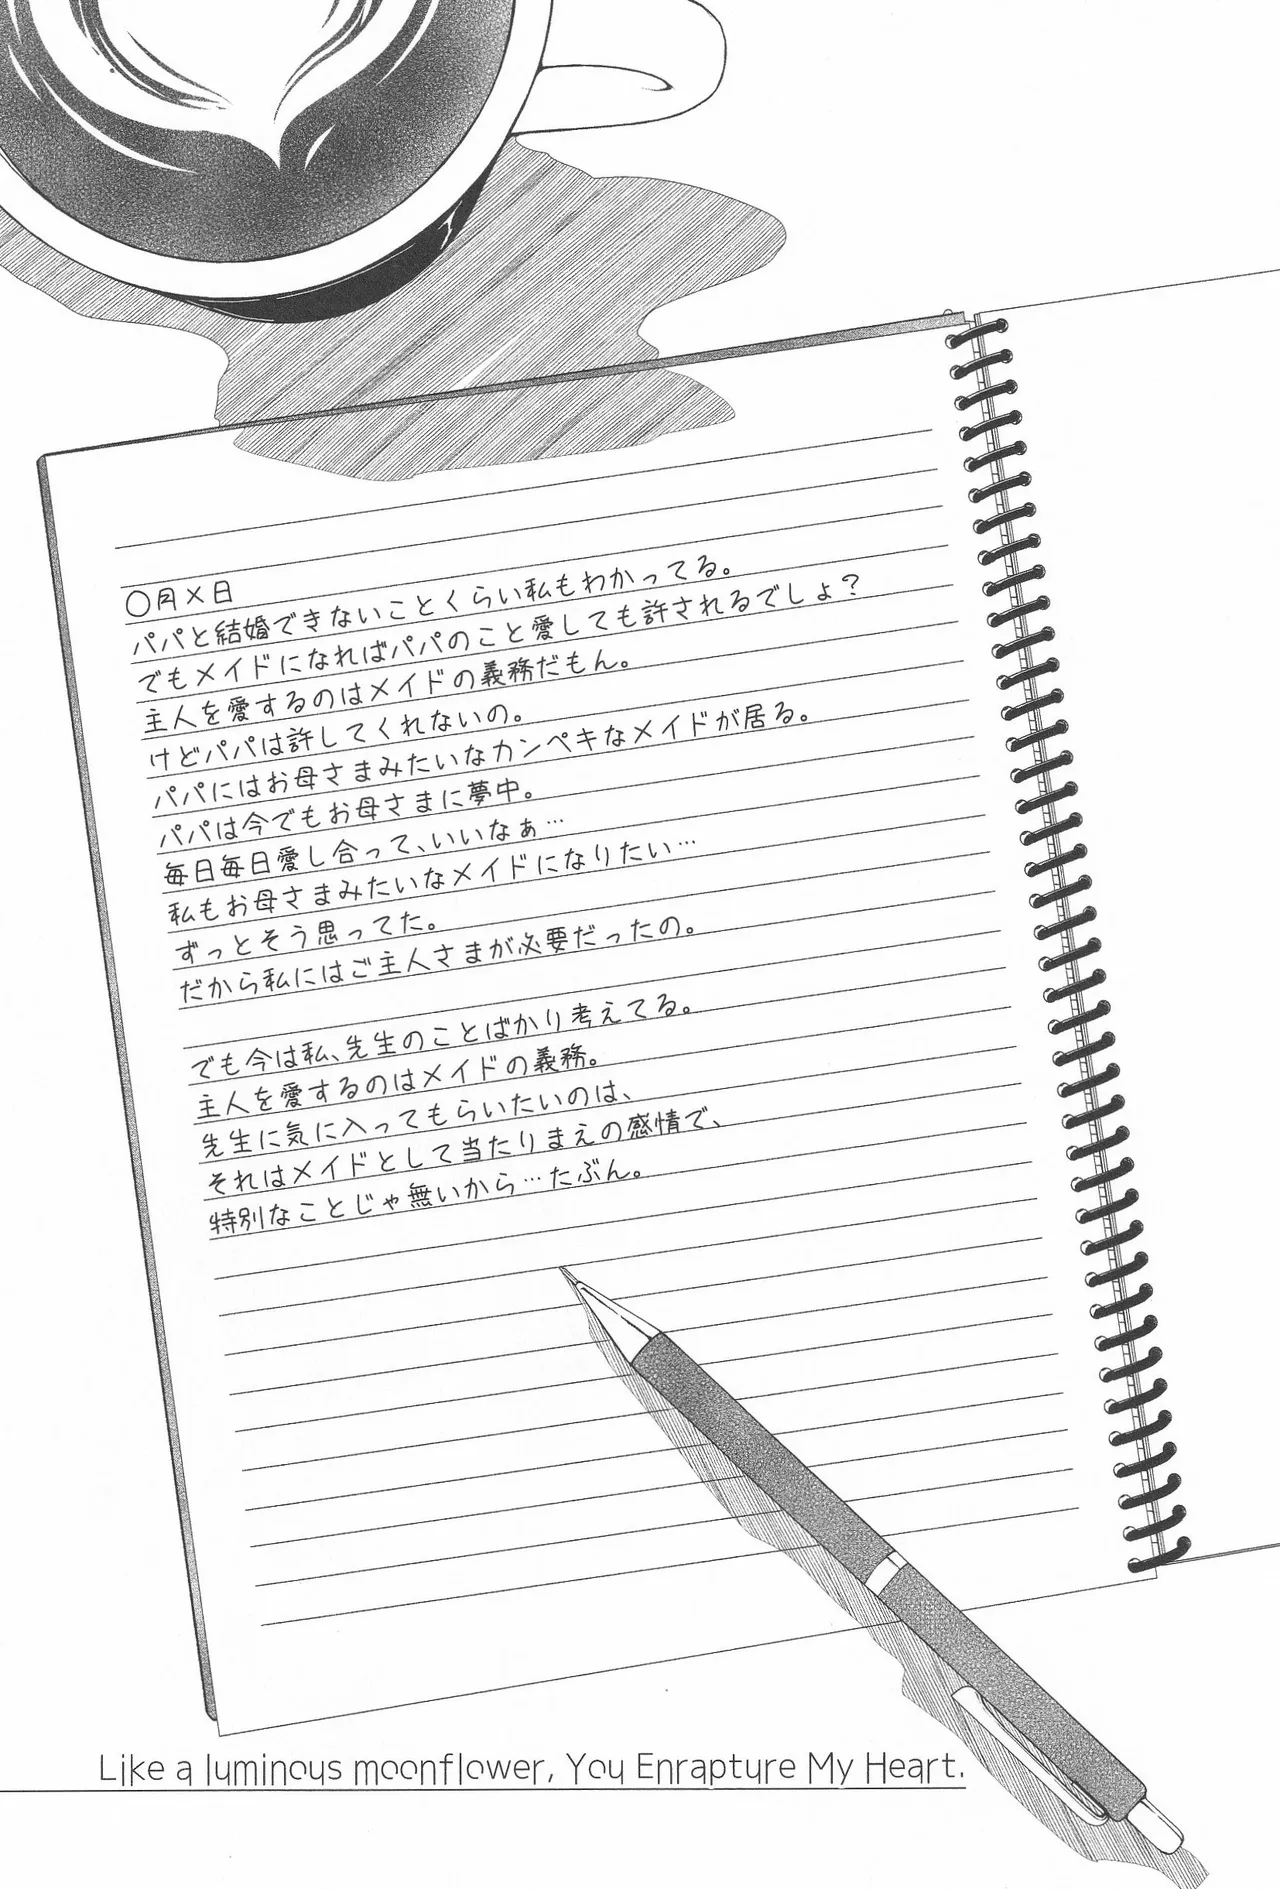 ○月×日
パパと結婚できないことくらい私もわかってる。
でもメイドになればパパのこと愛しても許されるでしょ？
主人を愛するのはメイドの義務だもん。
けどパパは許してくれないの。
パパにはお母さまみたいなカンペキなメイドが居る。
パパは今でもお母さまに夢中。
毎日毎日愛し合って、いいなぁ…
私もお母さまみたいなメイドになりたい…
ずっとそう思ってた。
だから私にはご主人さまが必要だったの。
でも今は私、先生のことばかり考えてる。
主人を愛するのはメイドの義務。
先生に気に入ってもらいたいのは、
それはメイドとして当たりまえの感情で、
特別なことじゃ無いから…たぶん。
Like a luminous moonflower, You Enrapture My Heart.